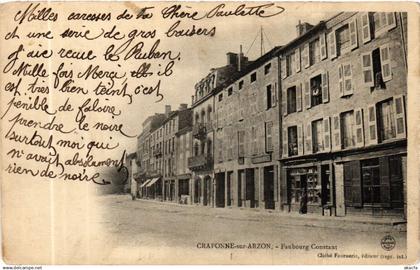 Milles caresses de ta chère Paulette
et une série de gros baisers
J'ai reçue le Ruban.
Mille fois Merci, elle-il
est très bien teint c'est
pénible de faloire
prendre le noire
surtout moi qui
n'avait absolument
rien de noire.
CRAPONNE-sur-ARZON. - Faubourg Constant
Cliché Faucherie, éditeur (repr. int.)